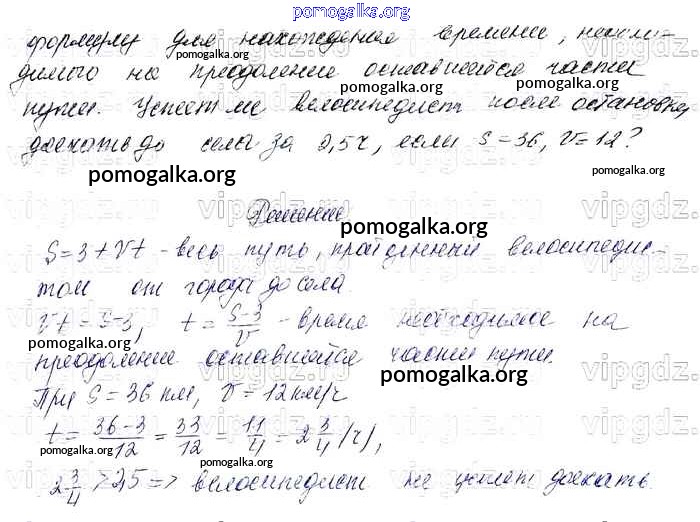 pomogalka.org
формулу для нахождения времени, необхо-
димого на преодоление оставшейся части
пути. Успеет ли велосипедист после остановки
доехать до села за 2,5ч, если S=36, V=12?
pomogalka.org
Решение
pomogalka.org
S=3+Vt - весь путь, пройденный велосипедис-
том от города до села.
Vt=S-3, t=\frac{S-3}{V} - время необходимое на
преодоление оставшейся части пути.
pomogalka.org
При S=36 км, V=12 км/ч
t=\frac{36-3}{12}=\frac{33}{12}=\frac{11}{4}=2\frac{3}{4}(ч),
2\frac{3}{4}>2,5=> велосипедист не успеет доехать.